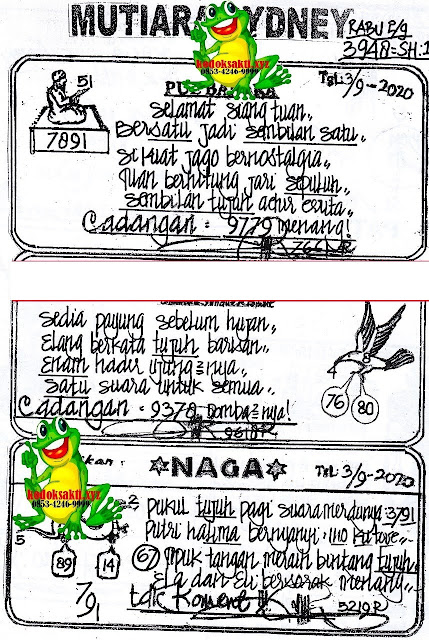 MUTIARA SYDNEY
RABU P/9
3948-SH:1
kodoksakti.xyz
0853-4246-9999
Tgl: 3/9-2020
51
7891
Selamat siang tuan,,
Bersatu jadi sembilan satu,,
Si kuat jago bernostalgia,,
Tuan berhitung jari sepuluh,,
Sembilan tujuh adur cerita,,
Cadangan: 9779 menang!
7661-R
Sedia payung sebelum hujan,,
Elang berkata tujuh barisan,,
Enam hadir ujung=nya,,
Satu suara untuk semua,,
Cadangan: 9378
4
8
76
80
NAGA
Tgl: 3/9-2020
kodoksakti.xyz
0853-4246-9999
Pukul tujuh pagi suara merdunya 3791
Putri halima bernyanyi: 1110
5
89
14
67
tangan meraih bintang tujuh
Ela dan Eli bersorak menang,,
7/91
tdk Koment
5210 R